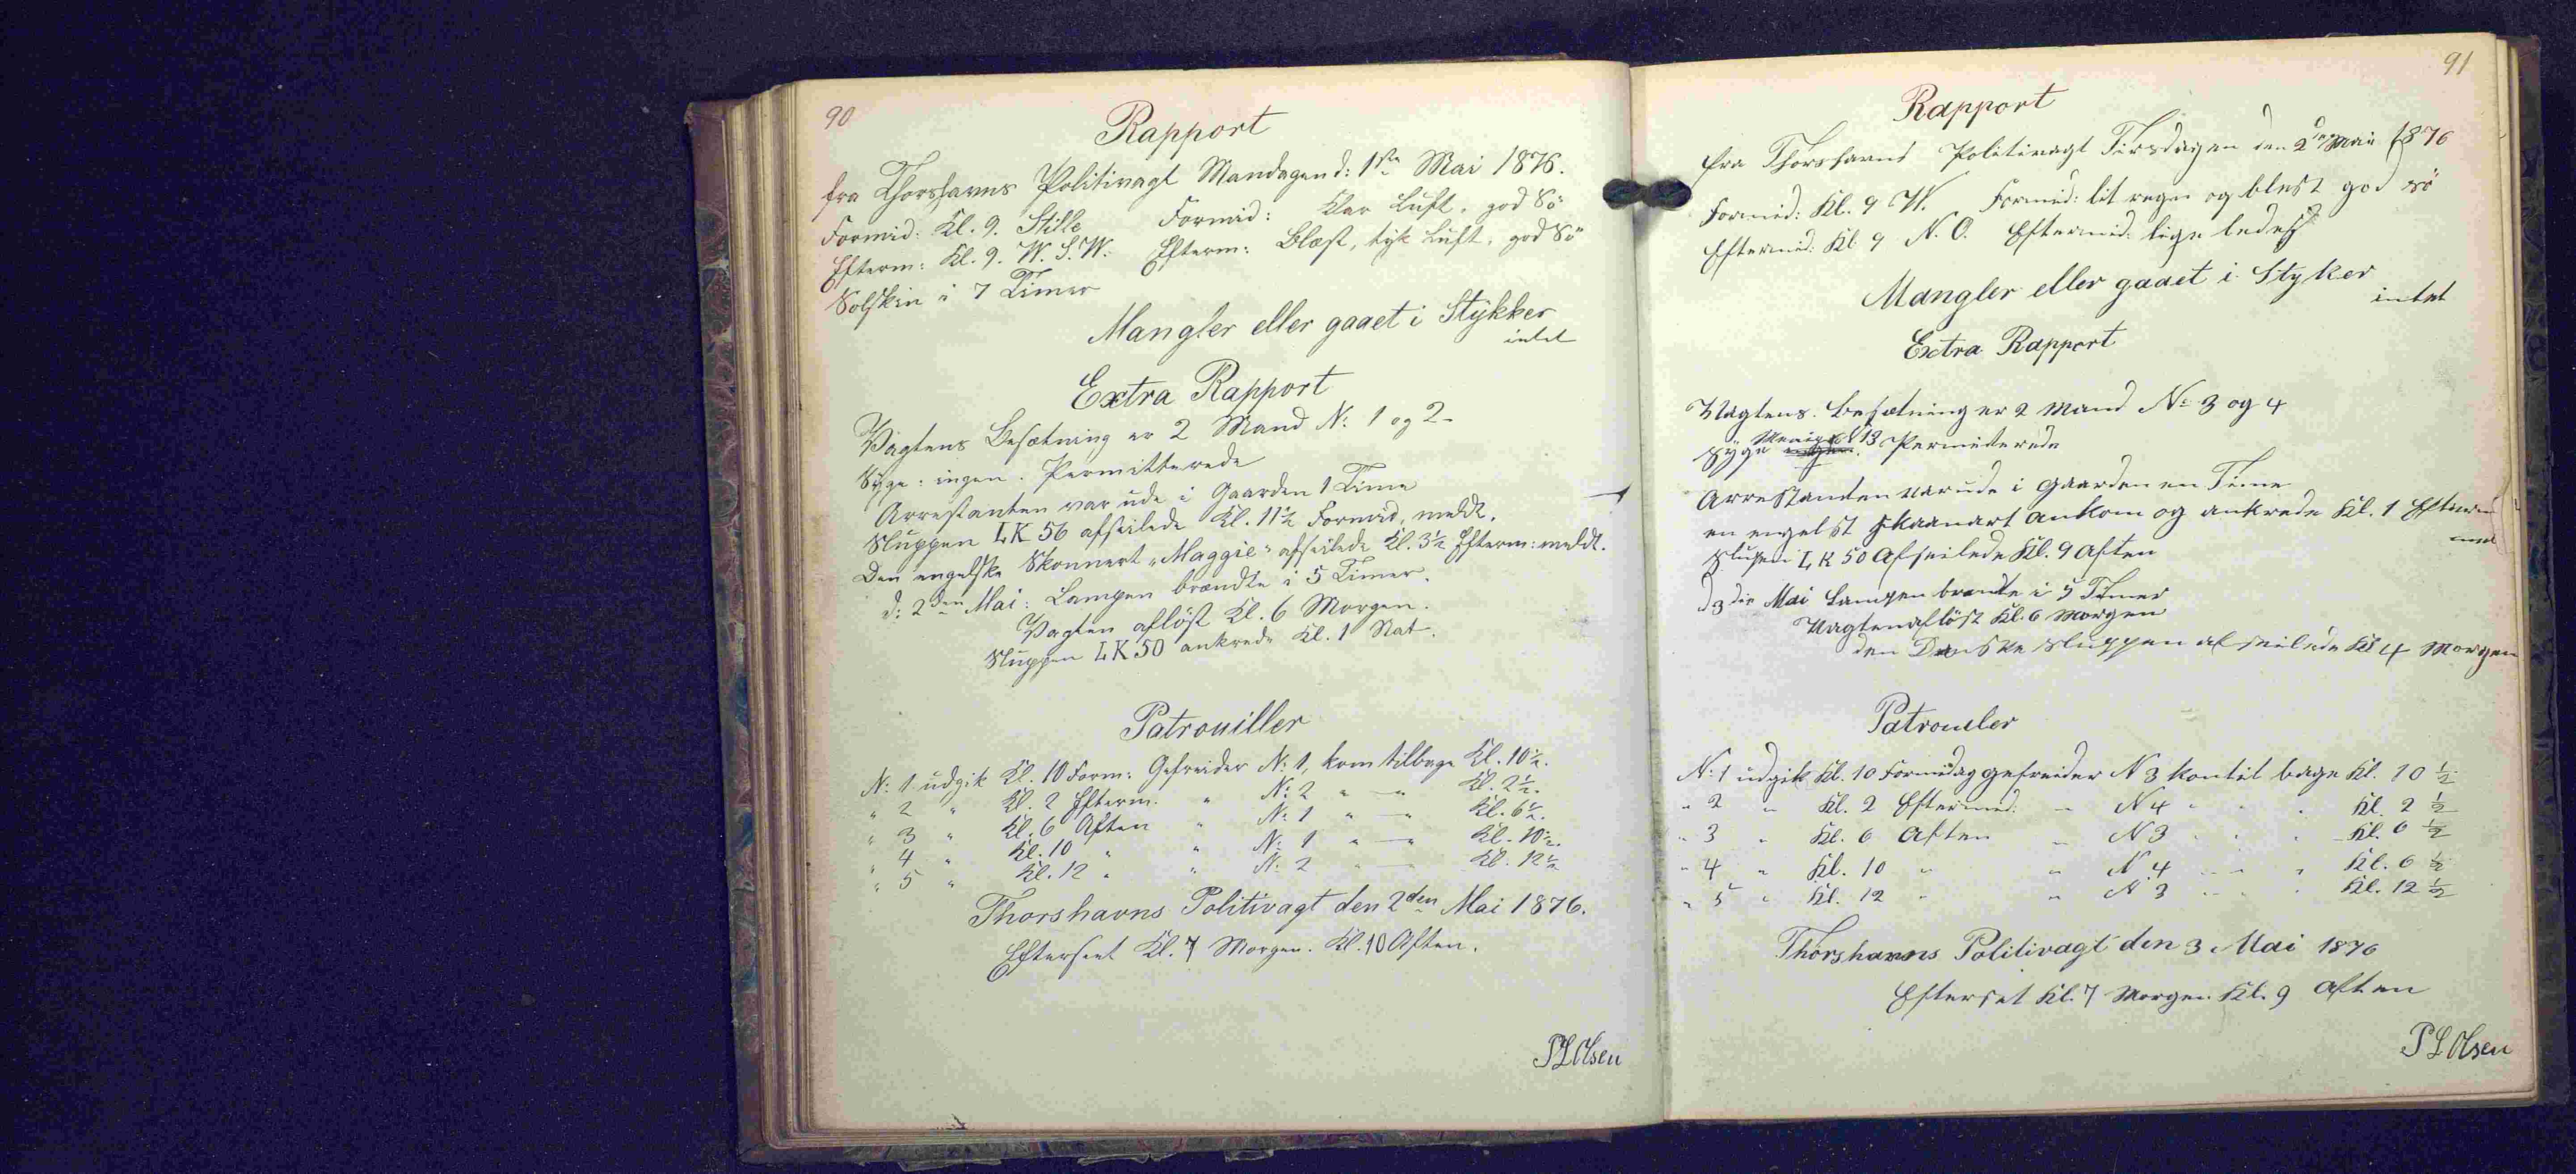 90
Rapport
fra Thorshavns Politivagt Mandagen d: 1ste Mai 1876.
Formid: Kl. 9. Stille Formid: Klar Luft, god Sö
Efterm: Kl. 9. W. S. W. Efterm: Blæst, tyk Luft, god Sö
Solskin i 7 Timer
Mangler eller gaaet i Stykker
intet
Extra Rapport
Vagtens Besætning er 2 Mand No: 1 og 2-
Syge: ingen. Permitterede
Arrestanten var ude i Gaarden 1 Time
Sluppen LK 56 afseilede Kl. 11½ Formid, meldt.
Den engelske Skonnert "Maggie" afseilede Kl. 3½ Efterm: meldt.
d: 2den Mai: Lampen brændte i 5 Timer.
Vagten aflöst Kl. 6 Morgen.
Sluppen LK 50 ankrede Kl. 1 Nat.
Patrouiller
No: 1 udgik Kl. 10 Form: Gefreider No: 1, kom tilbage Kl. 10½.
" 2 " Kl. 2 Efterm. " No: 2 " — " Kl. 2½.
" 3 " Kl. 6 Aften " No: 1 " — " Kl. 6½.
" 4 " Kl. 10 " " No: 1 " — " Kl. 10½.
" 5 " Kl. 12 " " No: 2 " — " Kl. 12½
Thorshavns Politivagt den 2den Mai 1876.
Efterseet Kl. 7 Morgen. Kl. 10 Aften.
PLOlsen
91
Rapport
fra Thorshavns Politivagt Tirsdagen den 2den Mai 1876
Formid: Kl. 9 W. Formid: lit regn og blest god sö
Eftermid: Kl 9 N. O. Eftermid: lige ledes
Mangler eller gaaet i Styker
intet
Extra Rapport
Vagtens Besætning er 2 Mand No: 3 og 4
Menige N 13
Syge ingen. Permiterede
Arrestanten var ude i Gaarden en Time
en engelst skaanart ankom og ankrede Kl. 1 Efterm
slupen LK 50 Afseilede Kl. 9 Aften
d 3die Mai Lampen brændte i 5 Timer
Vagten aflöst Kl. 6 Morgen
den Danske sluppen af seilede Kl 4 Morgen
Patrouler
No: 1 udgik Kl. 10 Formidag gefreider N 3 kom til bage Kl. 10 ½
" 2 " Kl. 2 Eftermid: " N 4 " " " Kl. 2 ½
" 3 " Kl. 6 Aften " N 3 " " " Kl. 6 ½
" 4 " Kl. 10 " " N 4 " " " Kl. 6 ½
" 5 " Kl. 12 " " N 3 " " " Kl. 12 ½
Thorshavns Politivagt den 3 Mai 1876
Efterset Kl. 7 Morgen Kl. 9 Aften
P L Olsen